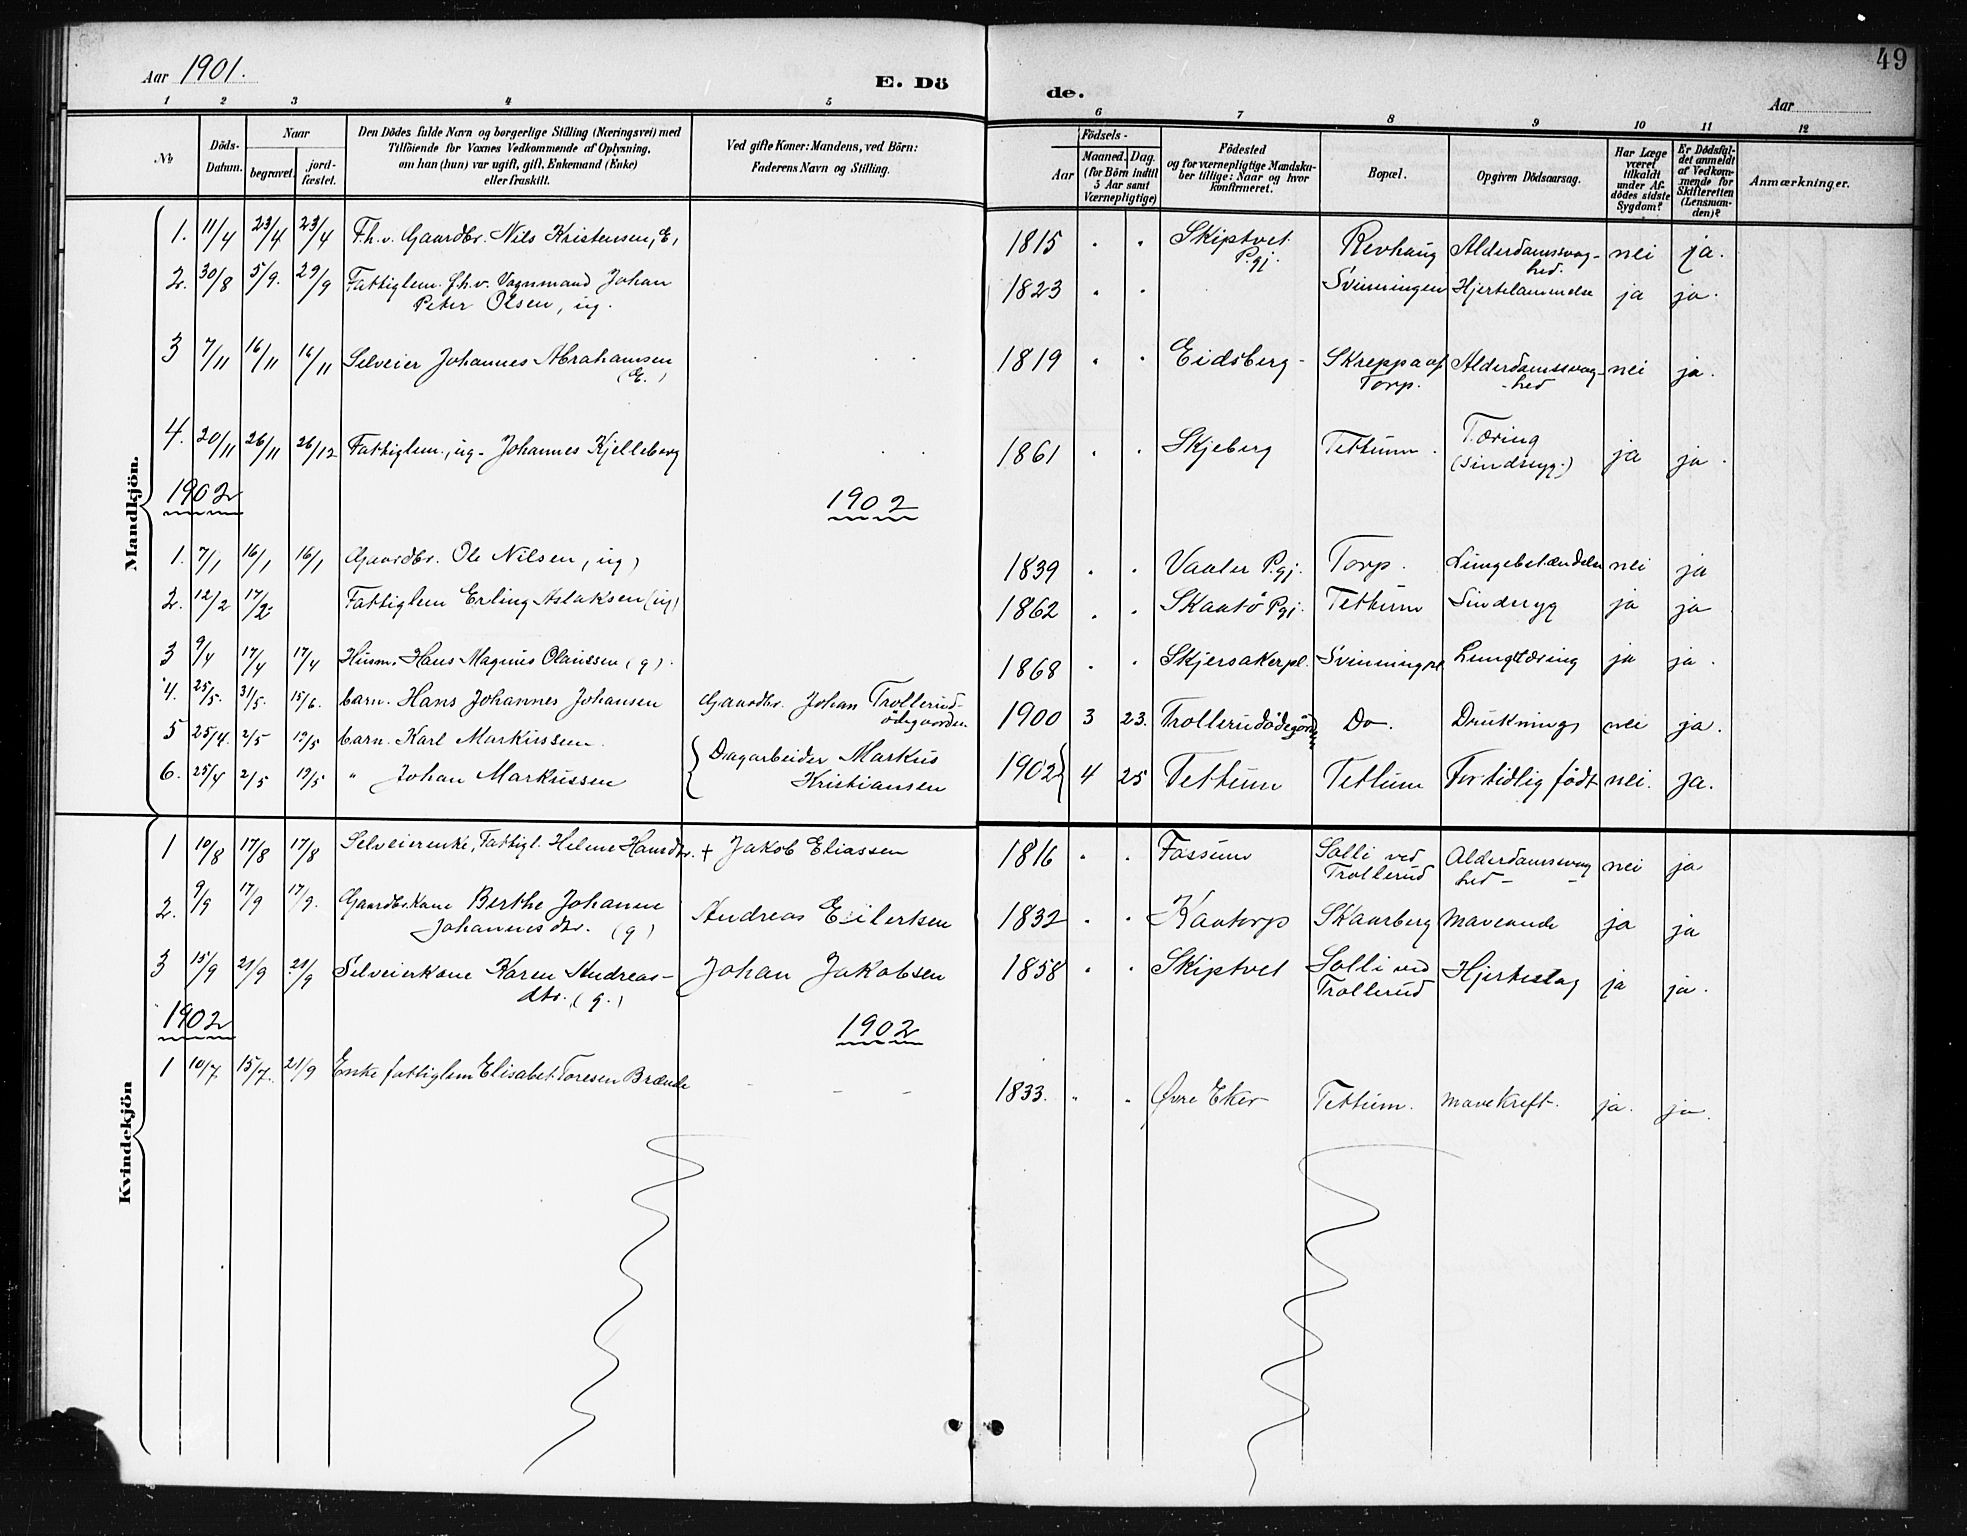 Aar 1901.
E. Dö
de.
49
Aar
1 2 3 4 5 6 7 8 9 10 11 12
No
Döds-Datum.
Naar
begravet.
jord-fæstet.
Den Dödes fulde Navn og borgerlige Stilling (Næringsvei) med
Tilföiende for Voxnes Vedkommende af Oplysning,
om han (hun) var ugift, gift, Enkemand (Enke)
eller fraskilt.
Ved gifte Koner: Mandens, ved Börn:
Faderens Navn og Stilling.
Födsels-
Aar
Maaned. Dag.
(for Börn indtil
5 Aar samt
Værnepligtige)
Födested
og for værnepligtige Mandska-
ber tillige: Naar og hvor
konfirmeret.
Bopæl.
Opgiven Dödsaarsag.
Har Læge
været
tilkaldt
under Af-
dödes sidste
Sygdom?
Er Dödsfal-
det anmeldt
af Vedkom-
mende for
Skifteretten
(Lensman-
den)?
Anmærkninger.
Mandkjön.
1. 11/4 23/4 23/4 F.h.v. Gaardbr. Nils Kristensen, E, 1815 " " Skiptvet Pgj. Revhaug Alderdomssvag-hed. nei ja.
2. 30/8 5/9. 29/9 Fattiglem. f.h.v. Vognmand Johan
Peter Olsen, ug. 1823 " " Svinningen Hjertelammelse ja ja.
3 7/11 16/11 16/11 Selveier Johannes Abrahamsen
(E.) 1819 " " Eidsberg - Skreppa af Torp. Alderdomssvag-hed nei ja.
4. 20/11 26/11 26/12 Fattiglem., ug. Johannes Kjelleberg 1861 " " Skjeberg Tettum. Tæring (Sindssyg.) ja ja.
1902
1902
1. 7/1 16/1 16/1 Gaardbr. Ole Nilsen, ug) 1839 " " Vaaler Pgj. Torp. Lungebetændelse nei ja
2. 12/2 17/2 Fattiglem Erling Aslaksen (ug) 1862 " " Skaatö Pgj. Tettum Sindssyg ja ja
3 9/4 17/4 17/4 Husm. Hans Magnus Olaussen (g). 1868 " " Skjersakerpl. Svinningpl. Lungetæring ja ja.
4. 25/5. 31/5. 15/6. barn. Hans Johannes Johansen Gaardbr. Johan Trollerud-
ödegaarden 1900 3 23. Trollerudödegården Do. Drukning nei ja.
5 25/4. 2/5 19/5 barn. Karl Markussen.
6. 25/4 2/5 19/5 " Johan Markussen
Dagarbeider Markus
Kristiansen 1902 4 25 Tettum Tettum For tidlig födt nei. ja.
Kvindekjön
1 10/8 17/8 17/8 Selveierenke, Fattigl. Helene Hansdtr. + Jakob Eliassen 1816 " " Fossum Solli ved Trollerud Alderdomssvaghed - nei ja
2. 9/9 17/9 17/9. Gaardbr.kone Berthe Johanne
Johannesdtr. (g) Andreas Eilertsen 1832 " " Kaatorp Skaarberg Maveonde ja ja
3 15/9 21/9 21/9 Selveierkone Karen Andreas-
dtr. (g.) Johan Jakobsen 1858 " " Skiptvet Solli ved Trollerud Hjerteslag ja ja.
1902
1902
1 10/7. 15/7. 21/9 Enke fattiglem Elisabet Toresen Brænde - - - 1833. " " Øvre Eker Tettum. Mavekreft. ja. ja.